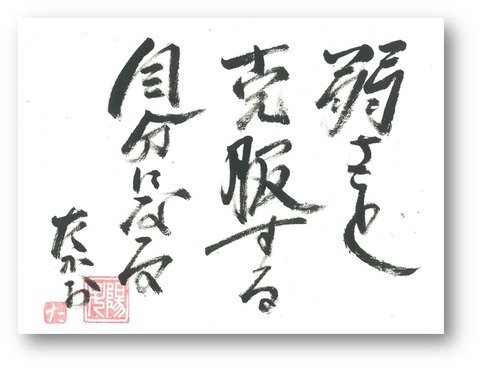 弱さを
克服する
自分になる
たかお
た